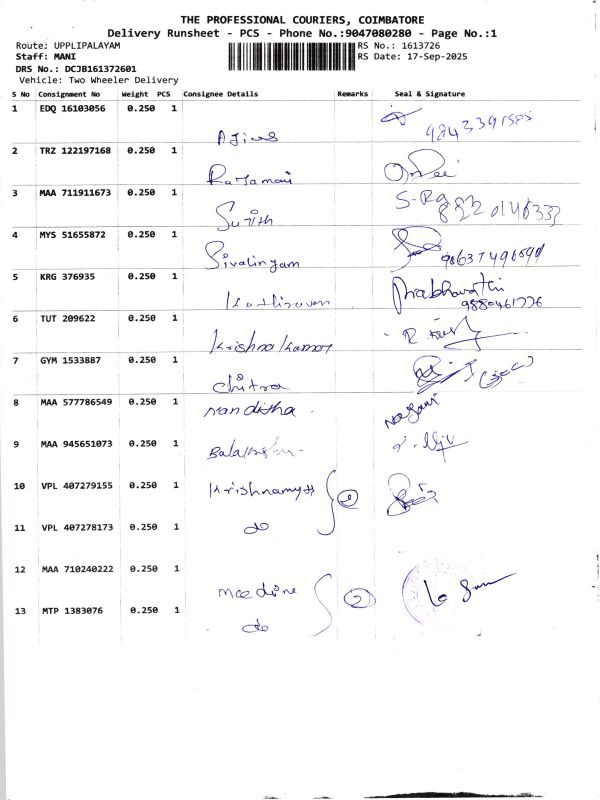 THE PROFESSIONAL COURIERS, COIMBATORE
Delivery Runsheet - PCS - Phone No.:9047080280 - Page No.:1
Route: UPPLIPALAYAM RS No.: 1613726
Staff: MANI RS Date: 17-Sep-2025
DRS No.: DCJB161372601
Vehicle: Two Wheeler Delivery
S No Consignment No Weight PCS Consignee Details Remarks Seal & Signature
1 EDQ 16103056 0.250 1
2 TRZ 122197168 0.250 1 Rajamani
3 MAA 711911673 0.250 1 Sujith
4 MYS 51655872 0.250 1 Sivalingam
5 KRG 376935 0.250 1 Kathiravan Prabhavathi
9880461776
6 TUT 209622 0.250 1 Krishna Kumar
7 GYM 1533887 0.250 1 Chitra
8 MAA 577786549 0.250 1 Nanditha
9 MAA 945651073 0.250 1
10 VPL 407279155 0.250 1 2
11 VPL 407278173 0.250 1 do
12 MAA 710240222 0.250 1 2
13 MTP 1383076 0.250 1 do